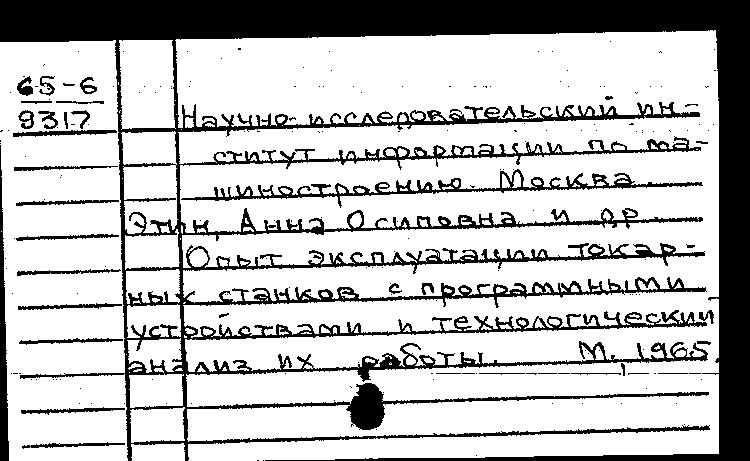 65-6
9317
Научно-исследовательский ин-
ститут информации по ма-
шиностроению. Москва
Этин, Анна Осиповна и др.
Опыт эксплуатации токар-
ных станков с программными
устройствами и технологический
анализ их работы. М., 1965.